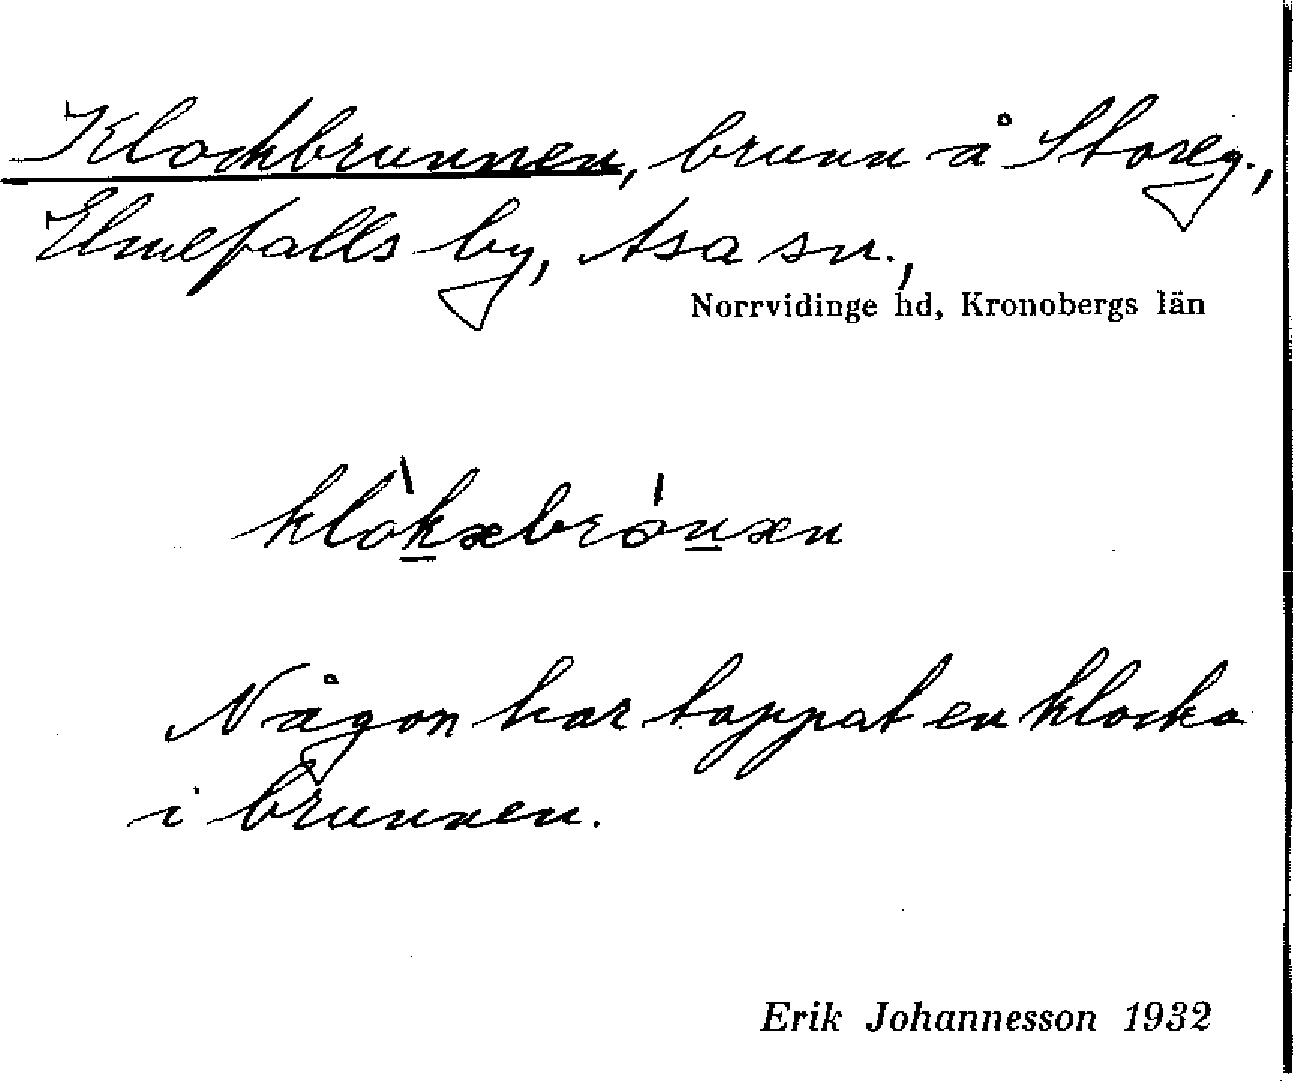 Klockbrunnen, brunn å Storeg.,
Elmefalls by, Asa sn.,
Norrvidinge hd, Kronobergs län
Någon har tappat en klocka
i brunnen.
Erik Johannesson 1932